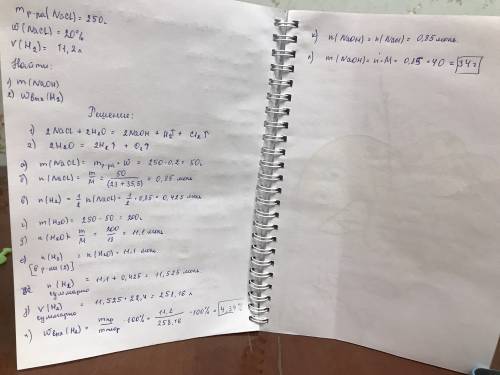 m р-ра (NaCl) = 250г
W (NaCl) = 20%
V (H₂) = 11,2 л
Найти:
1) m (NaOH)
2) Wвых (H₂)
Решение:
1) 2NaCl + 2H₂O = 2NaOH + H₂↑ + Cl₂↑
2) 2H₂O = 2H₂↑ + O₂↑
а) m (NaCl) = m р-ра · W = 250 · 0,2 = 50г
б) n (NaCl) = m/M = 50/(23 + 35,5) = 0,85 моль
в) n (H₂) = 1/2 n (NaCl) = 1/2 · 0,85 = 0,425 моль
г) m (H₂O) = 250 - 50 = 200г
д) n (H₂O) = m/M = 200/18 = 11,1 моль
е) n (H₂) = n (H₂O) = 11,1 моль
[в р-ии (2)]
n (H₂) суммарно = 11,1 + 0,425 = 11,525 моль
V (H₂) суммарно = 11,525 · 22,4 = 258,16 л
Wвых (H₂) = mпр/mтеор · 100% = 11,2/258,16 · 100% = 4,34%
n (NaOH) = n (NaCl) = 0,85 моль
m (NaOH) = n · M = 0,85 · 40 = 34г